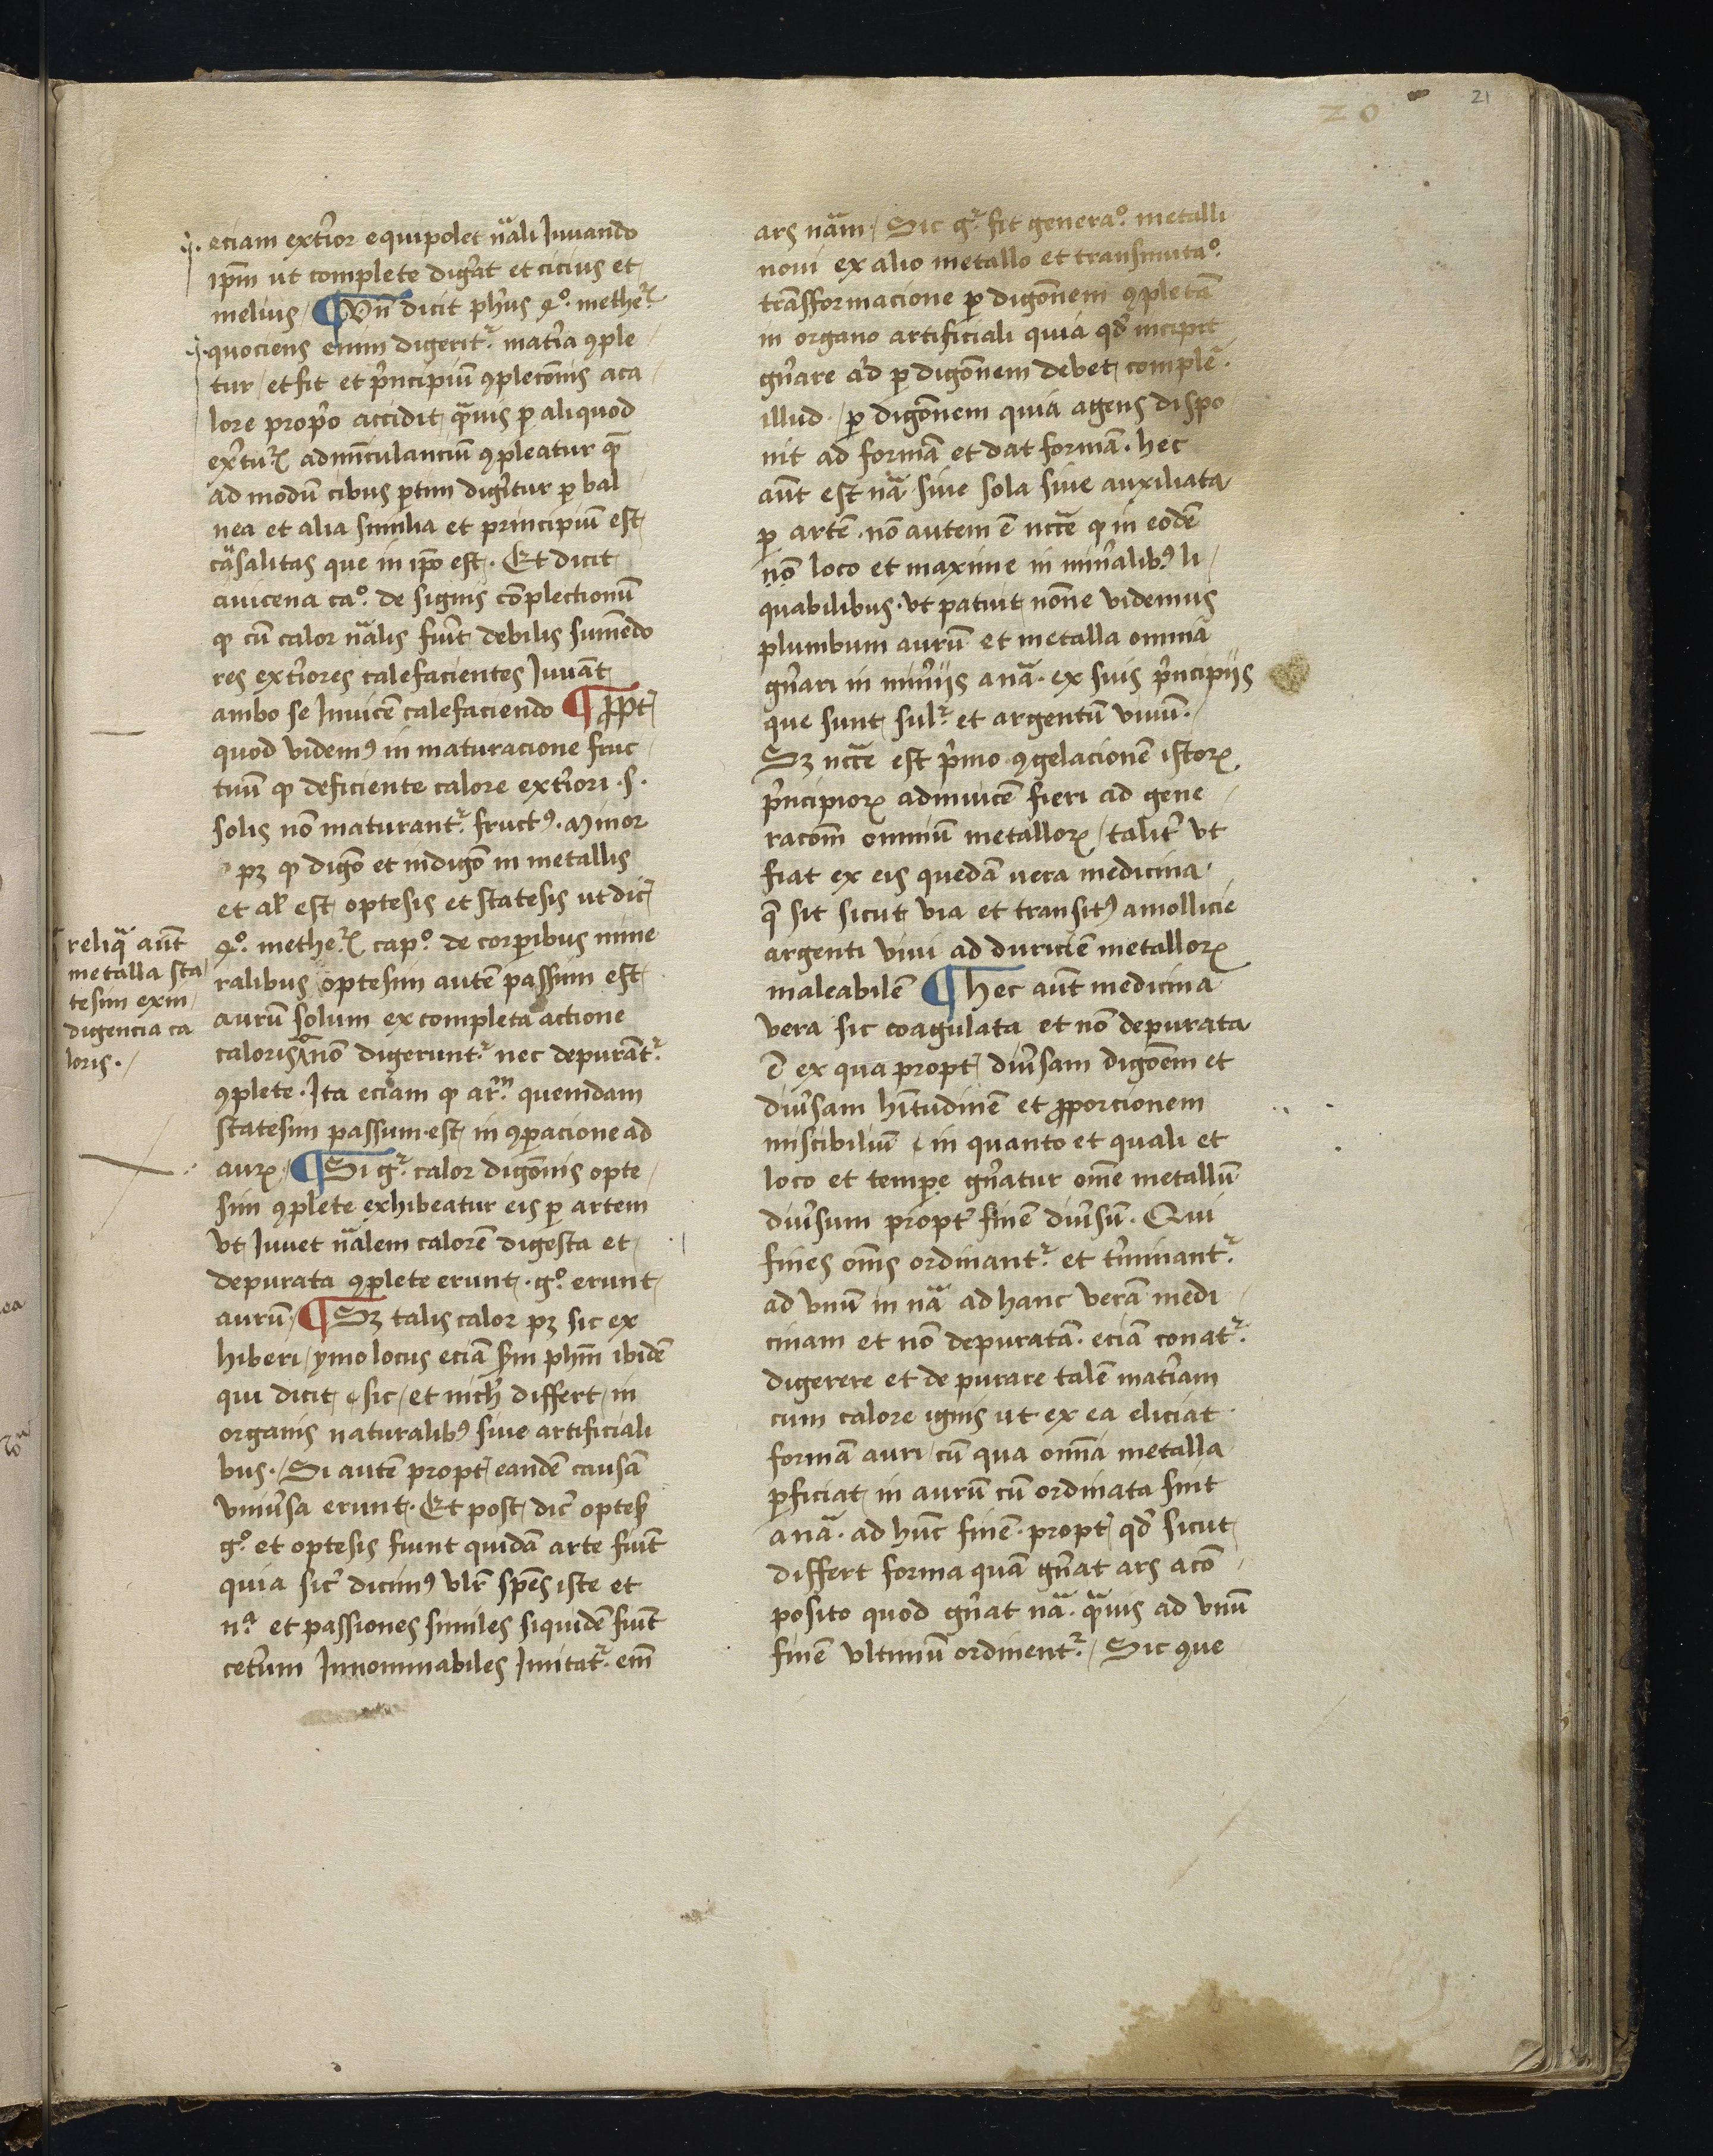 20
21
eciam exterior equipolet nãli Juuando
ipm̃ ut complete digerat et cicius et
melius / ¶ Vñ dicit phus 4º. metheꝝ
quociens enim digeritur matia ꝯple
tur / et fit et principiũ ꝯplecõnis a ca
lore proprio accidit quãuis ꝑ aliquod
extꝰꝝ adminiculanciũ ꝯpleatur quẽ
ad modũ cibus ꝑtim digeritur ꝑ bal
nea et alia similia et principiũ est
cãsalitas que in ipõ est. Et dicit
auicena caº. de signis cõplectionũ
ꝙ cũ calor nãlis fuerit debilis sumẽdo
res exteriores calefacientes Juuãt
ambo se Inuicẽ calefaciendo ¶ ꝓpt̃
quod videmꝰ in maturacione fruc
tuũ ꝙ deficiente calore exteriori .s.
solis nõ maturantur fructꝰ. Minor
pꝫ ꝙ digõ et indigõ in metallis
et al̃ est optesis et statesis ut dicit̃
4º. metheꝝ capº. de corꝑibus mine
ralibus optesim autẽ passum est
aurũ solum ex completa actione
caloris nõ digeruntur nec depurãtur
ꝯplete. Ita eciam ꝙ arm̃ quemdam
statesim passum est in ꝯꝑacione ad
auꝝ. ¶ Si gr̃ calor digõnis opte
sim ꝯplete exhibeatur eis ꝑ artem
vt Juuet nãlem calorẽ digesta et
depurata ꝯplete erunt. gº. erunt
aurũ. ¶ Sꝫ talis calor pꝫ sic ex
hiberi / ymo locus eciã scdm phm̃ ibidẽ
qui dicit sic / et nich̃ differt in
organis naturalibꝰ siue artificiali
bus. / Si autẽ propt̃ eandẽ causã
vniũsa erunt. Et post dic̃ optes̃
gº. et optesis fiunt quidã arte fiũt
quia sic̃ dicimꝰ vlr̃ spẽs iste et
nª et passiones similes siquidẽ fiũt
ceterum Innominabiles Imitatur em̃
reliqª aũt
metalla sta
tesim ex in
digencia ca
loris. /
ars nãm / Sic gr̃ fit generaº. metalli
noui ex alio metallo et transmutaº.
trãsformacione ꝑ digõnem ꝯpletã
in organo artificiali quia qd̃ incipit
gñare ad ꝑ digõnem debet comple
illud. / ꝑ digõnem quia agens dispo
nit ad formã et dat formã. hec
aũt est nã siue sola siue auxiliata
ꝑ artẽ. nõ autem ẽ nccẽ ꝙ in eodẽ
nõ loco et maxime in minalibꝰ li
quabilibus. vt patuit nõne videmus
plumbum aurũ et metalla omnia
gñari in mineriis a nã. ex suis principiis
que sunt sulr̃ et argentũ viuũ. /
Sꝫ nccẽ est primo ꝯgelacionẽ istoꝝ
principioꝝ adinuicẽ fieri ad gene
racõm omniũ metalloꝝ / talit̃ vt
fiat ex eis quedã uera medicina
q̃ sit sicut via et transitꝰ a mollicie
argenti viui ad duriciẽ metalloꝝ
maleabilẽ ¶ Hec aũt medicina
vera sic coagulata et nõ depurata
ẽ ex qua propt̃ diũsam digõem et
diũsam hĩtudinẽ et ꝓporcionem
miscibiliũ in quanto et quali et
loco et tempore gñatur om̃e metallũ
diũsum propt̃ finẽ diũsũ. Qui
fines om̃s ordinantur et t̃minantur
ad vnũ in nã ad hanc verã medi
cinam et nõ depuratã. eciã conatur
digerere et depurare talẽ matiam
cum calore ignis ut ex ea eliciat
formã auri / cũ qua omnia metalla
ꝑficiat in aurũ cũ ordinata sint
a nã. ad hũc finẽ. propt̃ qd̃ sicut
differt forma quã gñat ars a cõ
posito quod gñat nã. quãuis ad vnũ
finẽ vltimũ ordinentur / Sic que